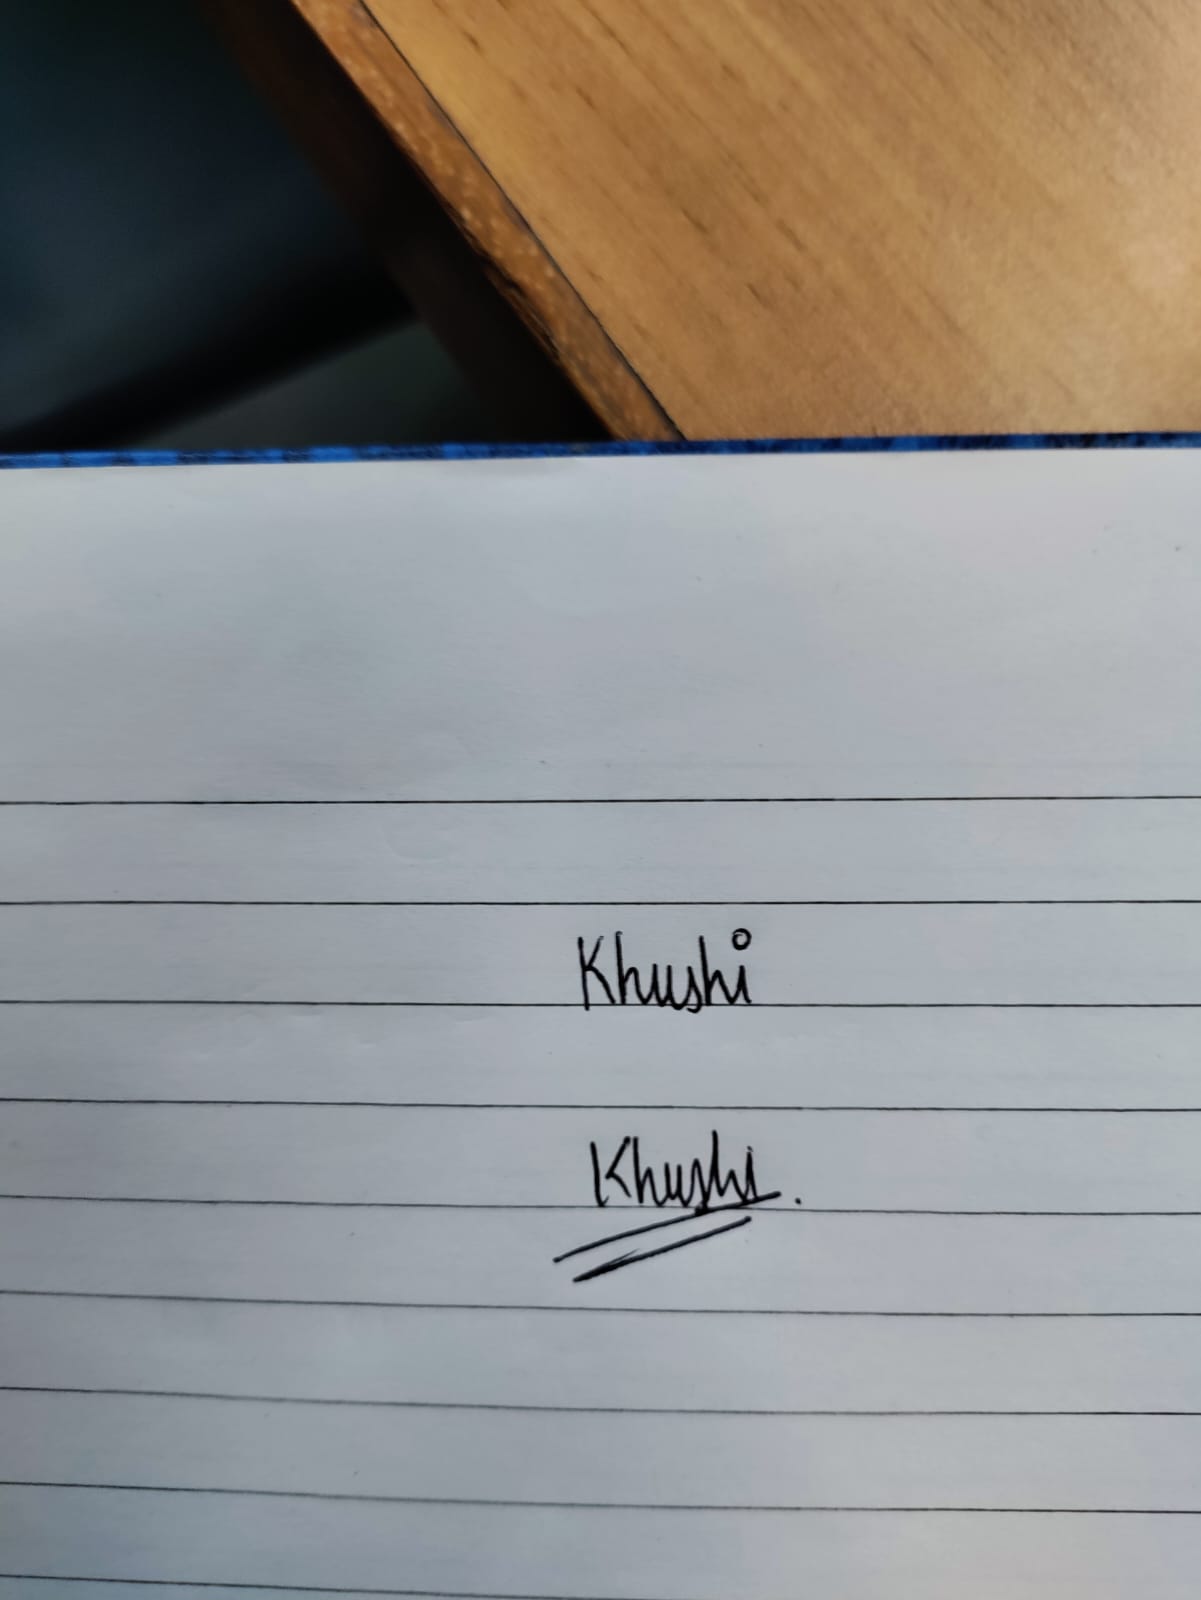 Khushi
Khushi.